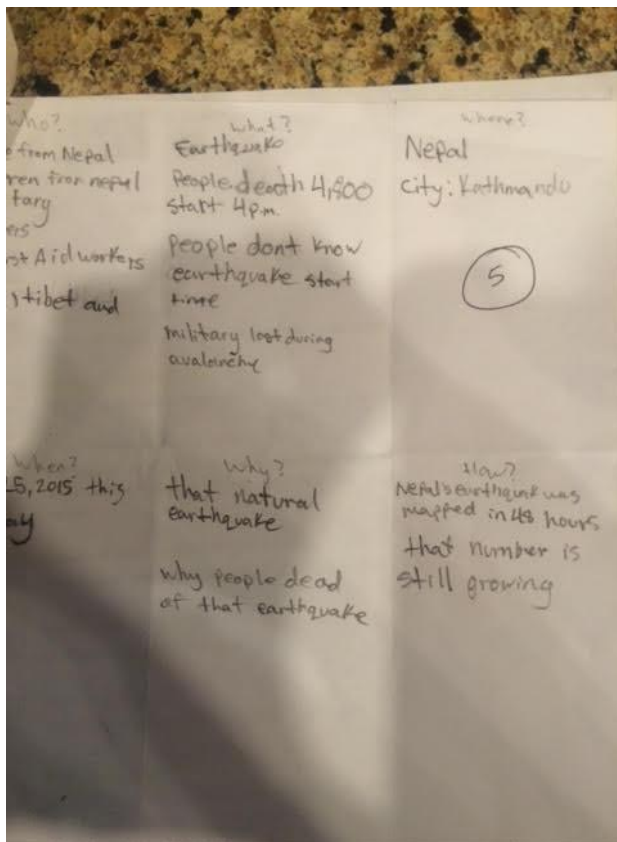 who?
e from Nepal
ren from nepal
tary
ers
st Aid workers
tibet and
what?
Earthquake
People death 4,800
start 4p.m.
people dont know
earthquake start
time
military lost during
avalanche
where?
Nepal
City: Kathmandu
5
When?
5, 2015 this
ay
Why?
that natural
earthquake
why people dead
of that earthquake
How?
Nepal's earthquake was
mapped in 48 hours
that number is
still growing